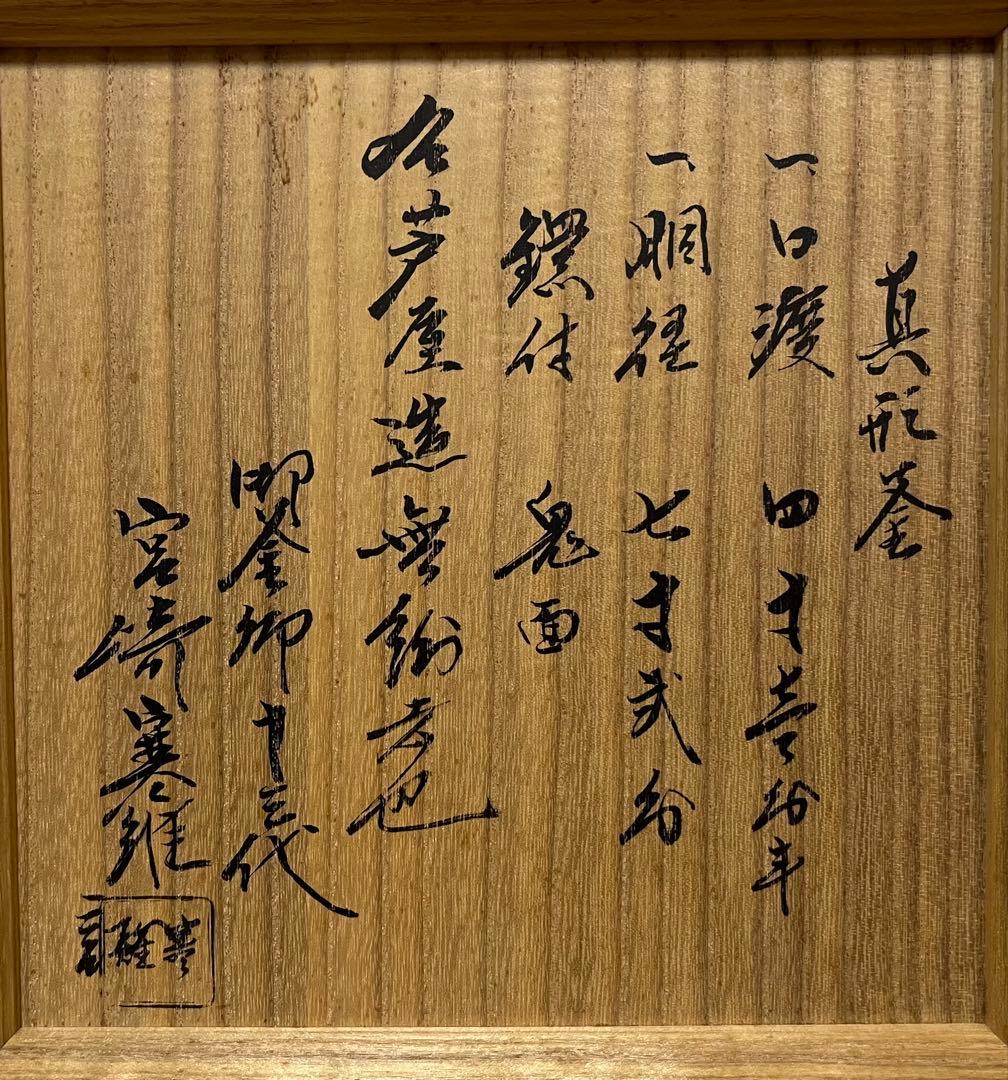 真形釜
一口渡 四寸壹分半
一胴径 七寸弐分
鐶付 鬼面
右芦屋造無紛者也
御釜師十三代
宮崎寒雉
寒雉